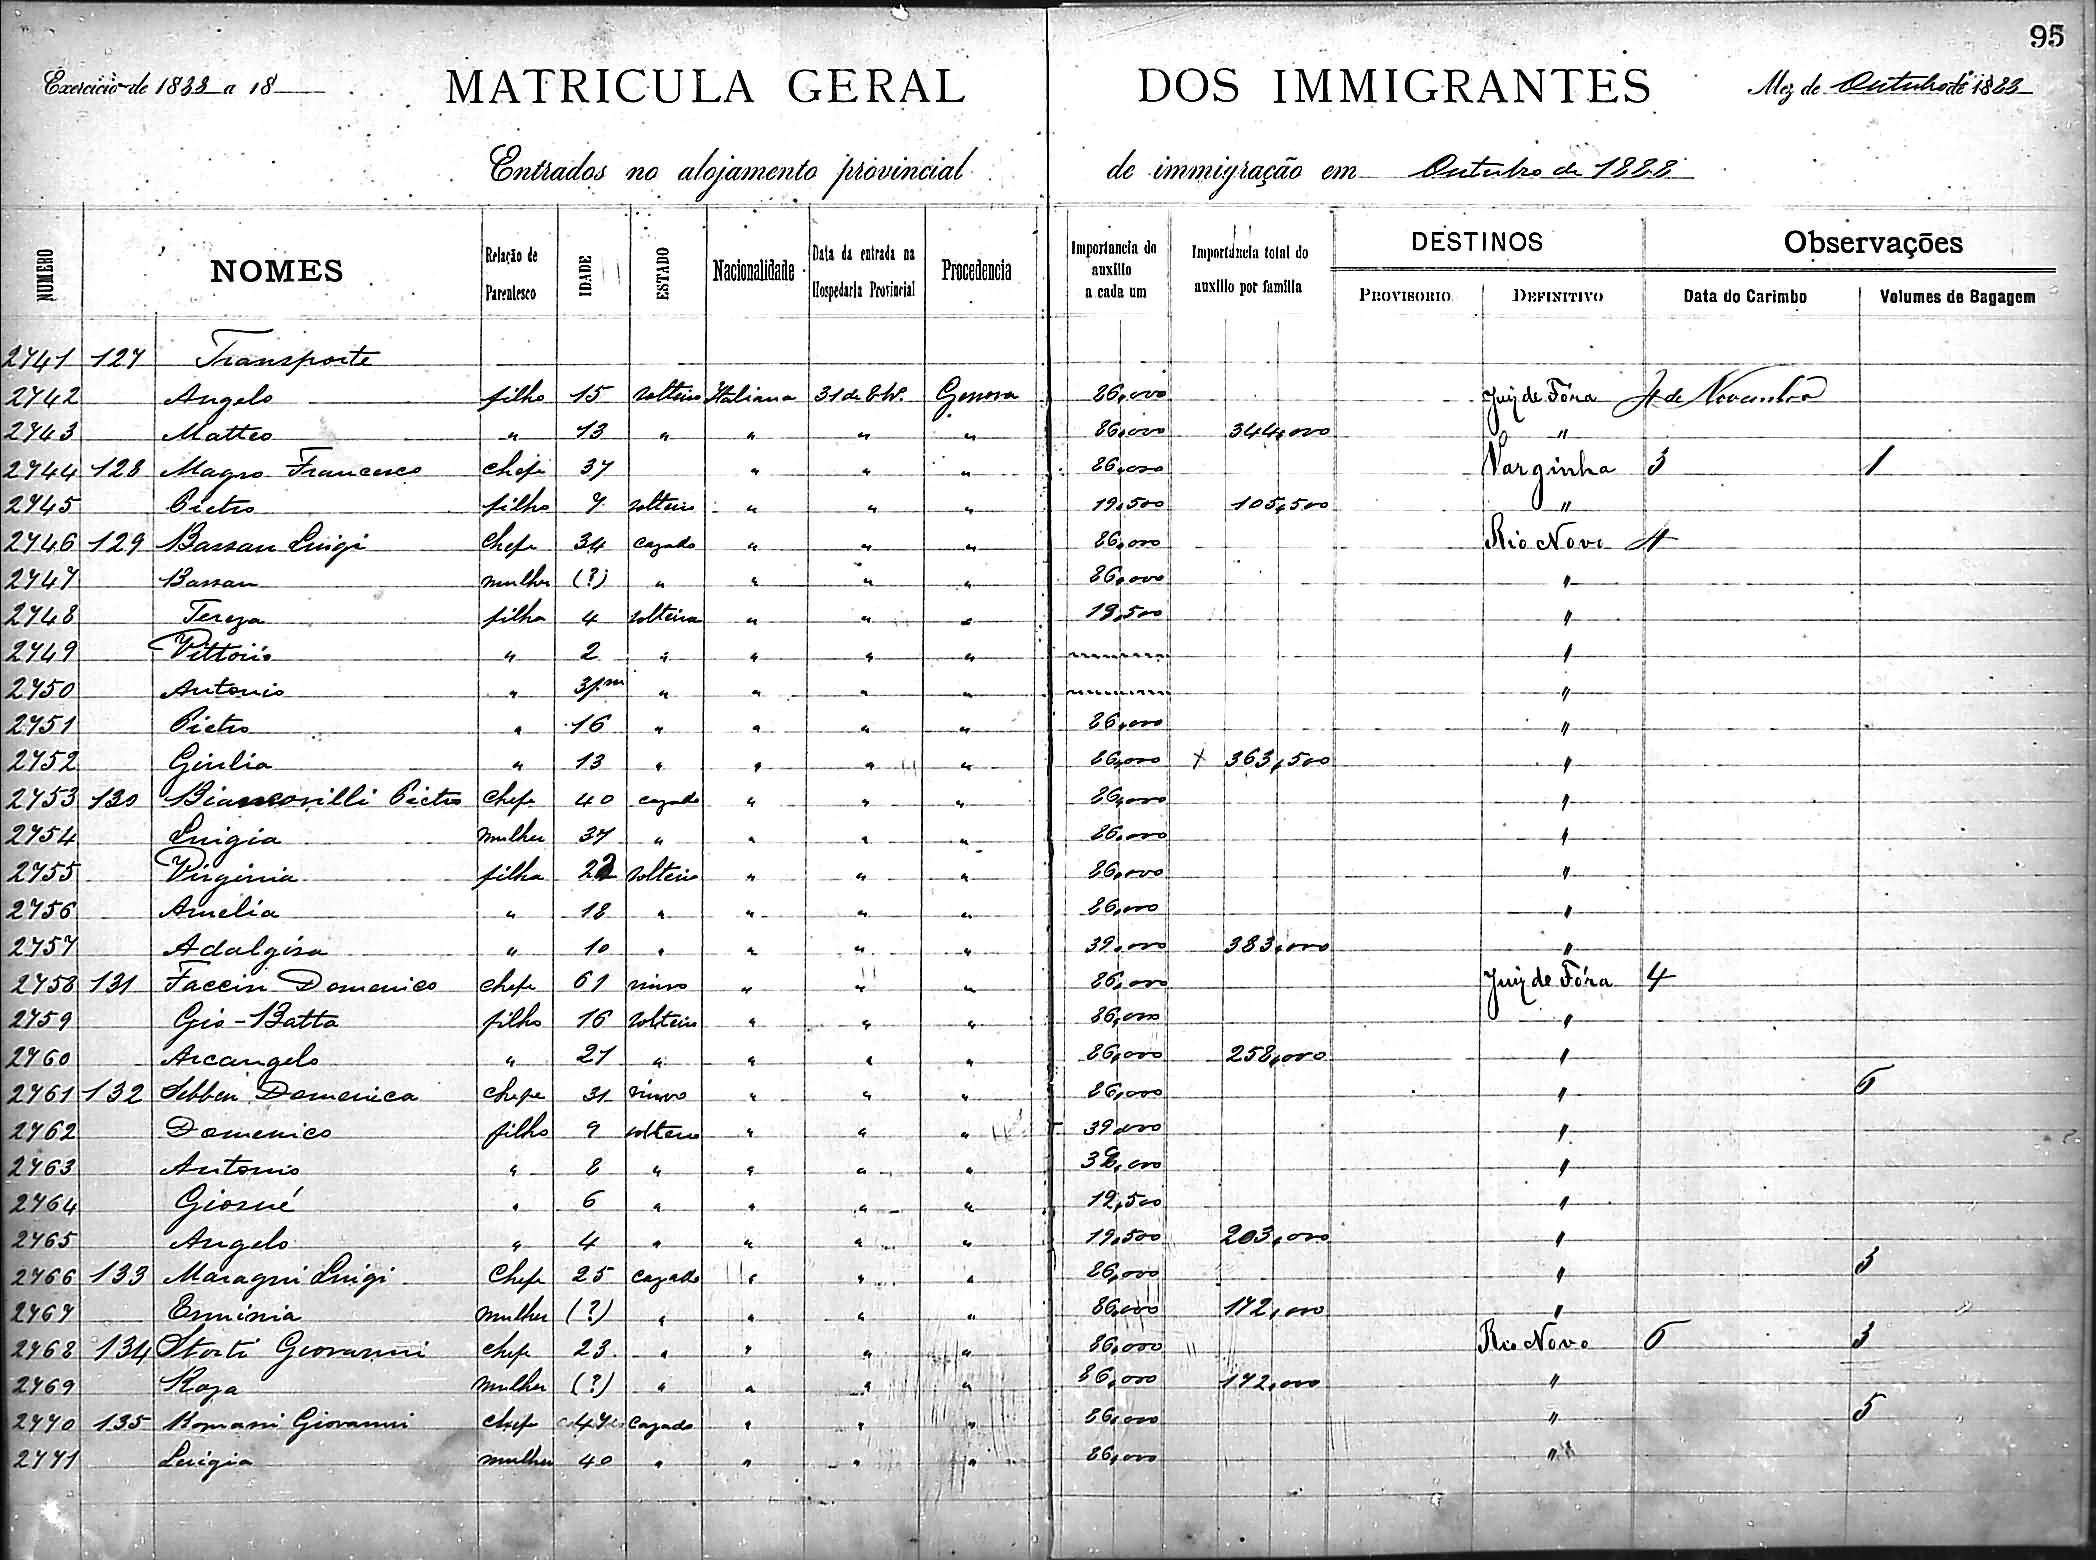 95
Exercicio de 1888 a 18
MATRICULA GERAL DOS IMMIGRANTES
Mez de Outubro de 1888
Entrados no alojamento provincial de immigração em Outubro de 1888
NUMERO NOMES Relação de Parentesco IDADE ESTADO Nacionalidade Data da entrada na Hospedaria Provincial Procedencia Importancia do auxilio a cada um Importancia total do auxilio por familia DESTINOS PROVISORIO DEFINITIVO Observações Data do Carimbo Volumes de Bagagem
2741 127 Transporte
2742 Angelo filho 15 solteiro Italiana 31 de Genova 86,000 Juiz de Fóra 4 de Novembro
2743 Matteo " 13 " " " " 86,000 344,000 "
2744 128 Magro Francesco chefe 37 " " " 86,000 Varginha 3 1
2745 Pietro filho 7 solteiro " " " 19,500 105,500 "
2746 129 Bassan Luigi Chefe 34 cazado " " " 86,000 Rio Novo 4
2747 Bassan mulher (?) " " " " 86,000 "
2748 Tereza filha 4 solteira " " " 19,500 "
2749 Vittorio " 2 " " " " "
2750 Antonio " 3/m " " " " "
2751 Pietro " 16 " " " " 86,000 "
2752 Giulia " 13 " " " " 86,000 x 363,500 "
2753 130 Pietro chefe 40 cazado " " " 86,000 "
2754 Luigia mulher 37 " " " " 86,000 "
2755 Virginia filha 22 solteiro " " " 86,000 "
2756 Amelia " 18 " " " " 86,000 "
2757 Adalgisa " 10 " " " " 39,000 383,000 "
2758 131 Faccin Domenico chefe 61 viuvo " " " 86,000 Juiz de Fóra 4
2759 Gio-Batta filho 16 solteiro " " " 86,000 "
2760 Arcangelo " 21 " " " " 86,000 258,000 "
2761 132 Sebben Domenica chefe 31 viuvo " " " 86,000 " 6
2762 Domenico filho 9 solteiro " " " 39,000 "
2763 Antonio " 8 " " " " 39,000 "
2764 Giosué " 6 " " " " 19,500 "
2765 Angelo " 4 " " " " 19,500 203,000 "
2766 133 Maragni Luigi Chefe 25 cazado " " " 86,000 " 3
2767 Erminia mulher (?) " " " " 86,000 172,000 "
2768 134 Storti Giovanni chefe 23 " " " " 86,000 Rio Novo 6 3
2769 Roza mulher (?) " " " " 86,000 172,000 "
2770 135 Romani Giovanni chefe 47 cazado " " " 86,000 " 5
2771 Luigia mulher 40 " " " " 86,000 "